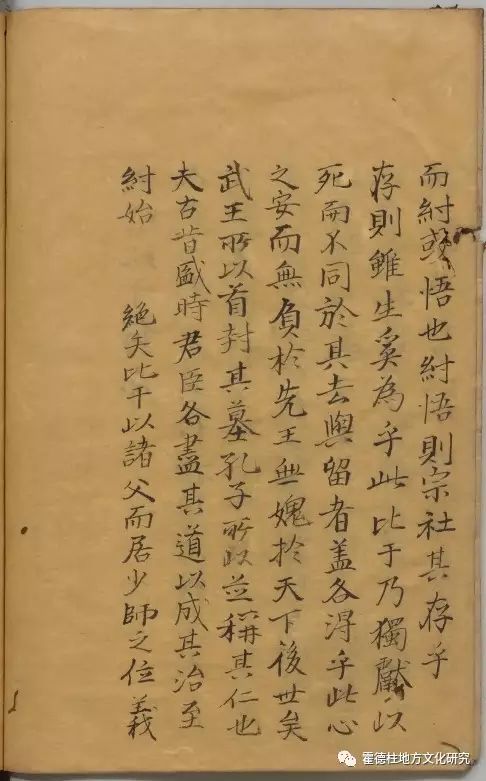 而紂或悟也紂悟則宗社其存乎
存則雖生奚為乎此比于乃獨獻以
死而不同於其去與留者盖各得乎此心
之安而無負於先王無媿於天下後世矣
武王所以首封其墓孔子所以並稱其仁也
夫古昔盛時君臣各盡其道以成其治至
紂始 絕矣比干以諸父而居少師之位義
霍德柱地方文化研究